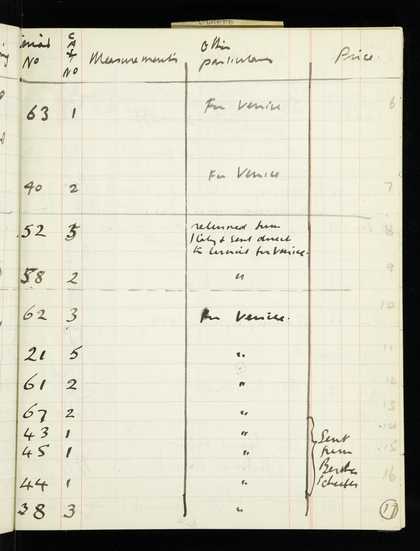 No CAT NO Measurements Other particulars Price.
63 1 For Venice 6
40 2 For Venice 7
52 5 returned from 8
Italy & sent direct
to for Venice.
58 2 " 9
62 3 For Venice. 10
21 5 " 11
61 2 " 12
67 2 " 13
43 1 " Sent 14
45 1 " from 15
44 1 " 16
38 3 " 17